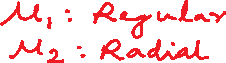 M₁ : Regular
M₂ : Radial